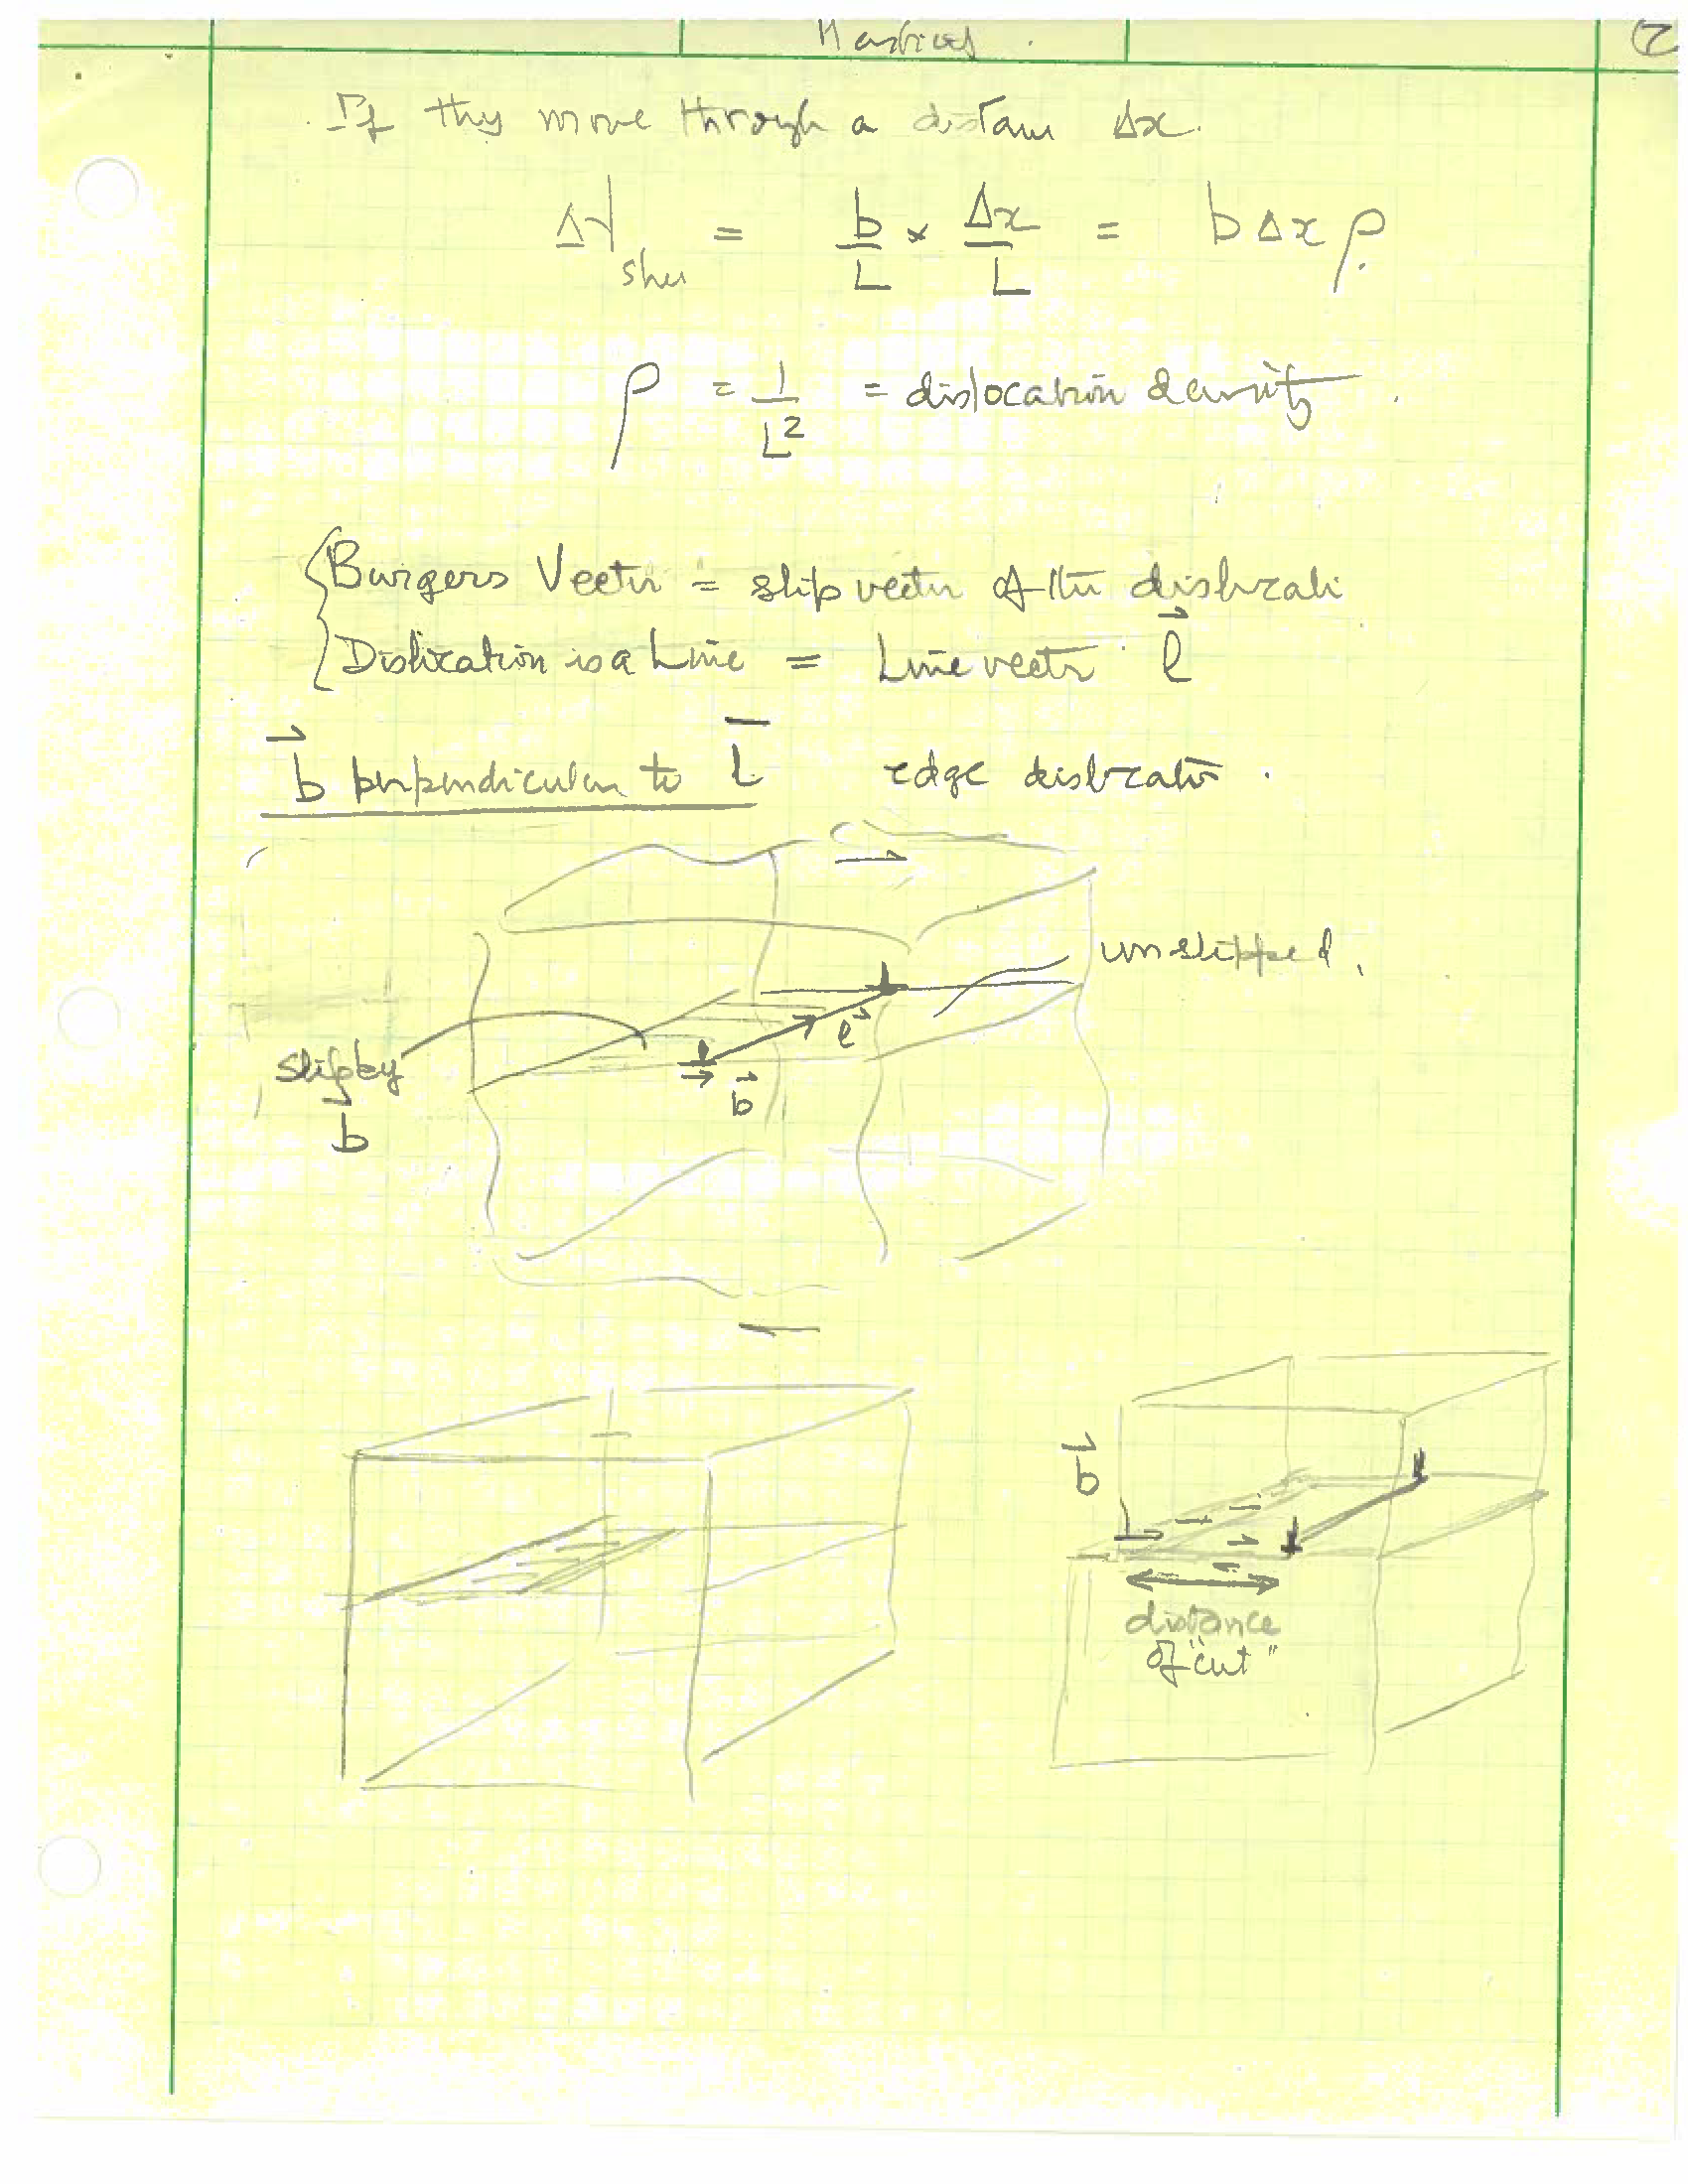 2
If they move through a distance Δx.
Δγ shear = b/L × Δx/L = b Δx ρ.
ρ = 1/L² = dislocation density.
Burgers Vector = slip vector of the dislocati
Dislocation is a Line = Line vector l⃗
b⃗ perpendicular to L̄ edge dislocation.
unslipped.
l⃗
Slip by
b⃗
b⃗
b⃗
distance
of "cut"